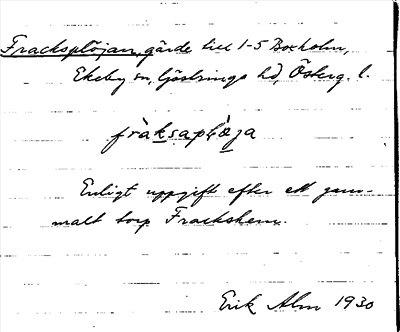 Fracksplöjan, gärde till 1-5 Boxholm,
Ekeby sn, Göstrings hd, Österg. l.
fràksaplö̀ja
Enligt uppgift efter ett gam-
malt torp Frackshem.
Erik Alm 1930